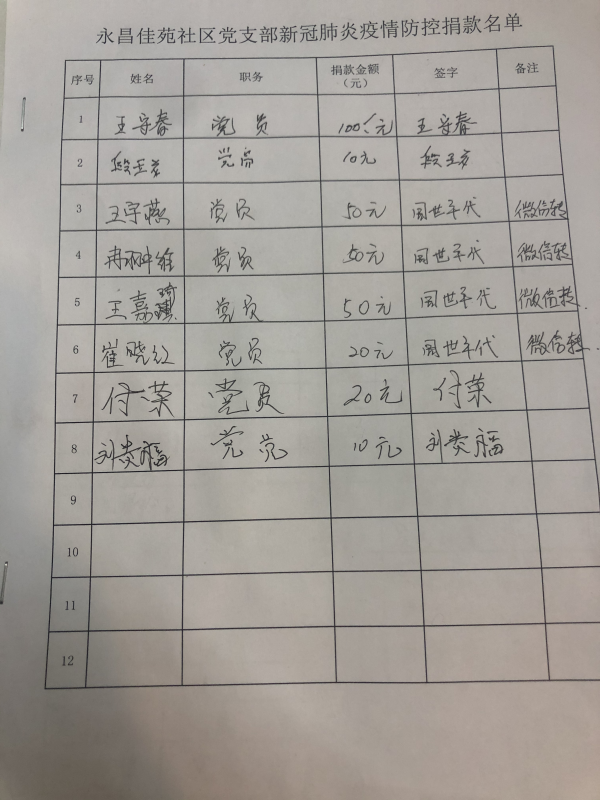 永昌佳苑社区党支部新冠肺炎疫情防控捐款名单
序号 姓名 职务 捐款金额（元） 签字 备注
1 王守春 党员 100元 王守春
2 党员 10元
3 王宇燕 党员 50元 闫世年代 微信转
4 冉 党员 50元 闫世年代 微信转
5 王嘉琦 党员 50元 闫世年代 微信转
6 崔晓红 党员 20元 闫世年代 微信转
7 付荣 党员 20元 付荣
8 刘贵福 党党 10元 刘贵福
9
10
11
12